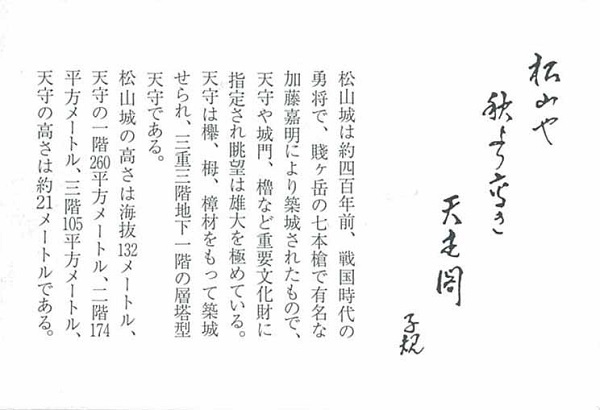 松山や
秋より高き
天主閣
子規
松山城は約四百年前、戦国時代の
勇将で、賤ヶ岳の七本槍で有名な
加藤嘉明により築城されたもので、
天守や城門、櫓など重要文化財に
指定され眺望は雄大を極めている。
天守は欅、栂、樟材をもって築城
せられ、三重三階地下一階の層塔型
天守である。
松山城の高さは海抜132メートル、
天守の一階260平方メートル、二階174
平方メートル、三階105平方メートル、
天守の高さは約21メートルである。